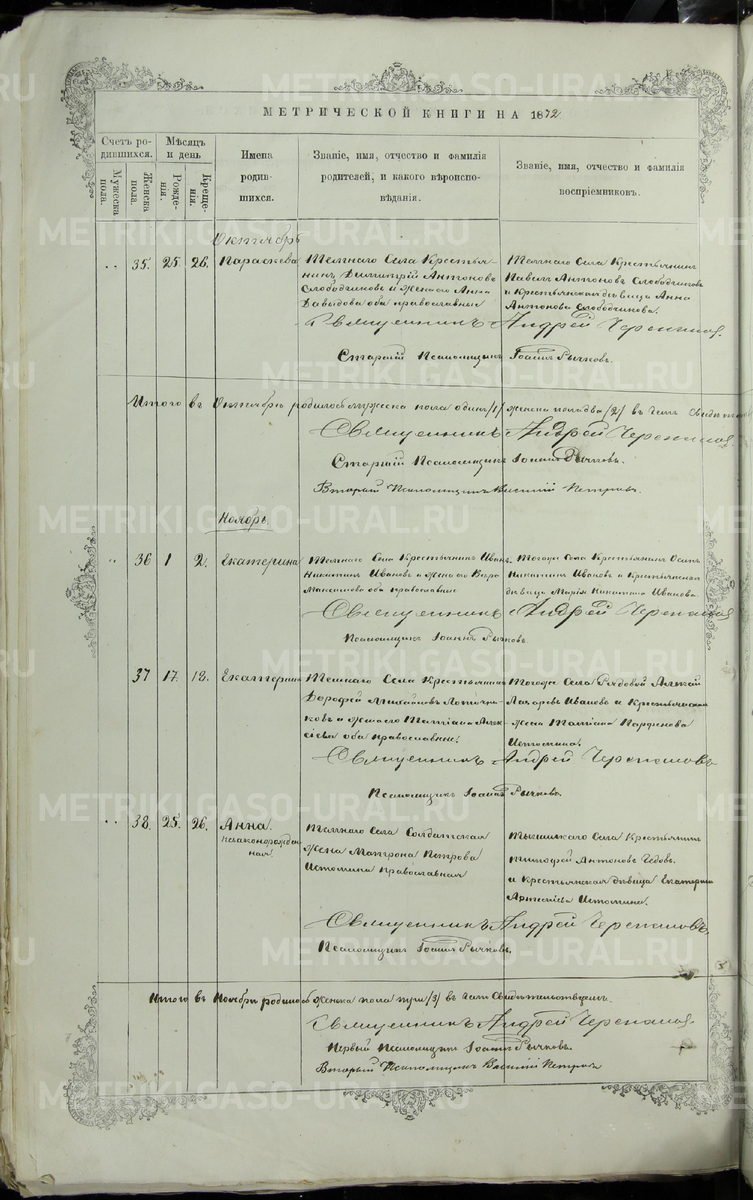 МЕТРИЧЕСКОЙ КНИГИ НА 1872
Счетъ родившихся.
Мужеска пола.
Женска пола.
Мѣсяцъ и день
Рожденія.
Крещенія.
Имена
родив-
шихся.
Званіе, имя, отчество и фамилія
родителей, и какого вѣроиспо-
вѣданія.
Званіе, имя, отчество и фамилія
воспріемниковъ.
Октябрь
35. 25. 26. Параскева
Села Крестья-
нинъ Димитрій Антоновъ
Слободчиковъ и жена его Анна
Давыдова оба православные
Села Крестьянинъ
Павелъ Антоновъ Слободчиковъ
и Крестьянская дѣвица Анна
Антонова Слободчикова.
Священникъ Андрей Черепановъ.
Старшій Псаломщикъ Іоаннъ Рычковъ.
Итого въ Октябрѣ родилось мужеска пола одинъ /1/ женска пола два /2/ въ чемъ
Священникъ Андрей Черепановъ.
Старшій Псаломщикъ Іоаннъ Рычковъ.
Вторый Псаломщикъ Василій Петровъ.
Ноябрь.
36 1 2. Екатерина
Села Крестьянинъ Иванъ
Никитинъ Ивановъ и жена его Вѣра
Максимова оба православные
Тогоже Села Крестьянинъ Осипъ
Никитинъ Ивановъ и Крестьянская
дѣвица Марія Никитина Иванова.
Священникъ Андрей Черепановъ
Псаломщикъ Іоаннъ Рычковъ.
37 17. 18. Екатерина
Села Крестьянинъ
Дорофей Михайловъ
и жена его Татіана Алек-
сіева оба православные.
Тогоже Села Рядовой
Лазаревъ Ивановъ и Крестьянская
жена Татіана Парфенова
Истомина.
Священникъ Андрей Черепановъ
Псаломщикъ Іоаннъ Рычковъ.
38. 25. 26. Анна
незаконорожден-
ная.
Села Солдатская
жена Матрона Петрова
Истомина православная
Села Крестьянинъ
Тимофей Антоновъ
и Крестьянская дѣвица Екатерина
Артеміева Истомина.
Священникъ Андрей Черепановъ.
Псаломщикъ Іоаннъ Рычковъ.
Итого въ Ноябрѣ родилось женска пола три /3/ въ чемъ Свидѣтельствуемъ.
Священникъ Андрей Черепановъ.
Первый Псаломщикъ Іоаннъ Рычковъ.
Вторый Псаломщикъ Василій Петровъ
METRIKI.GASO-URAL.RU